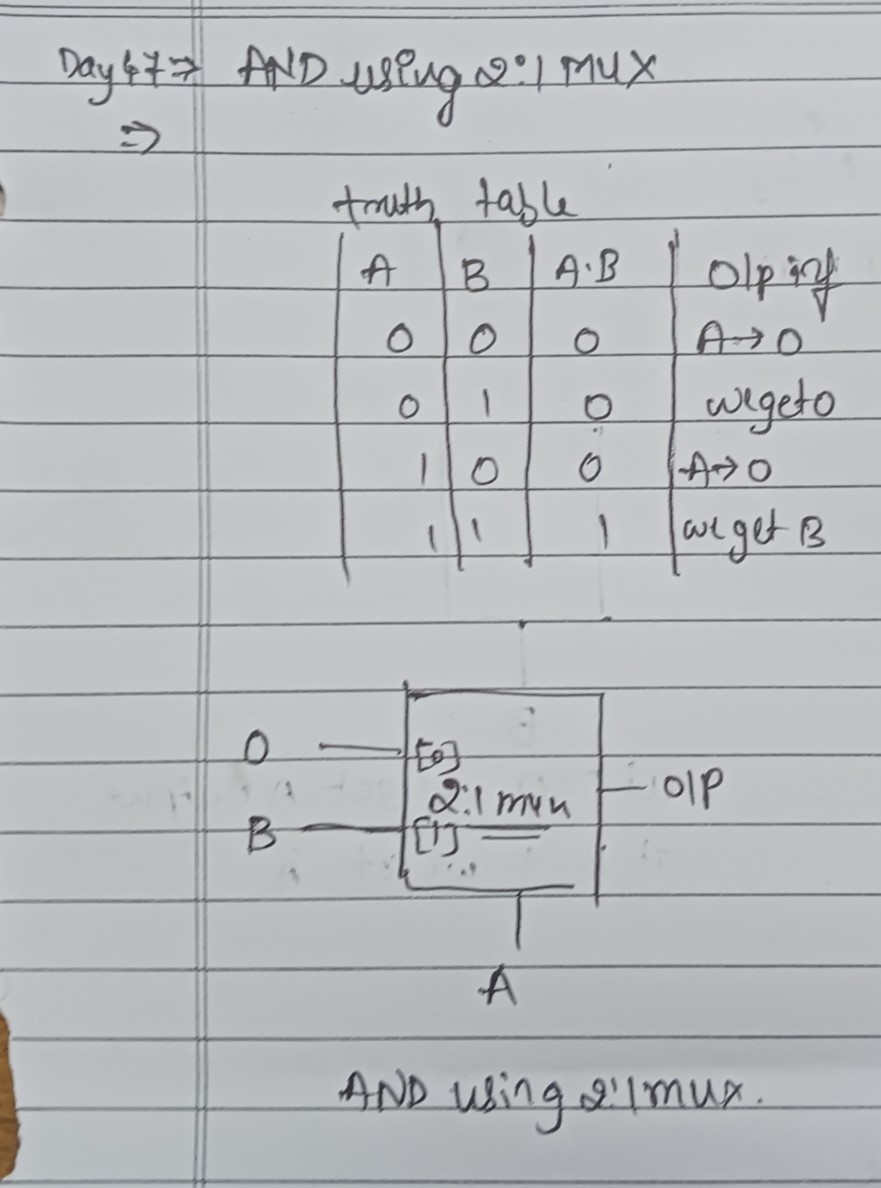 Day 47 ⇒ AND using 2:1 mux
⇒
truth table
A B A·B O/p
0 0 0 A→0
0 1 0 we get 0
1 0 0 A→0
1 1 1 we get B
0 [0]
2:1 mux O/P
B [1]
A
AND using 2:1 mux.